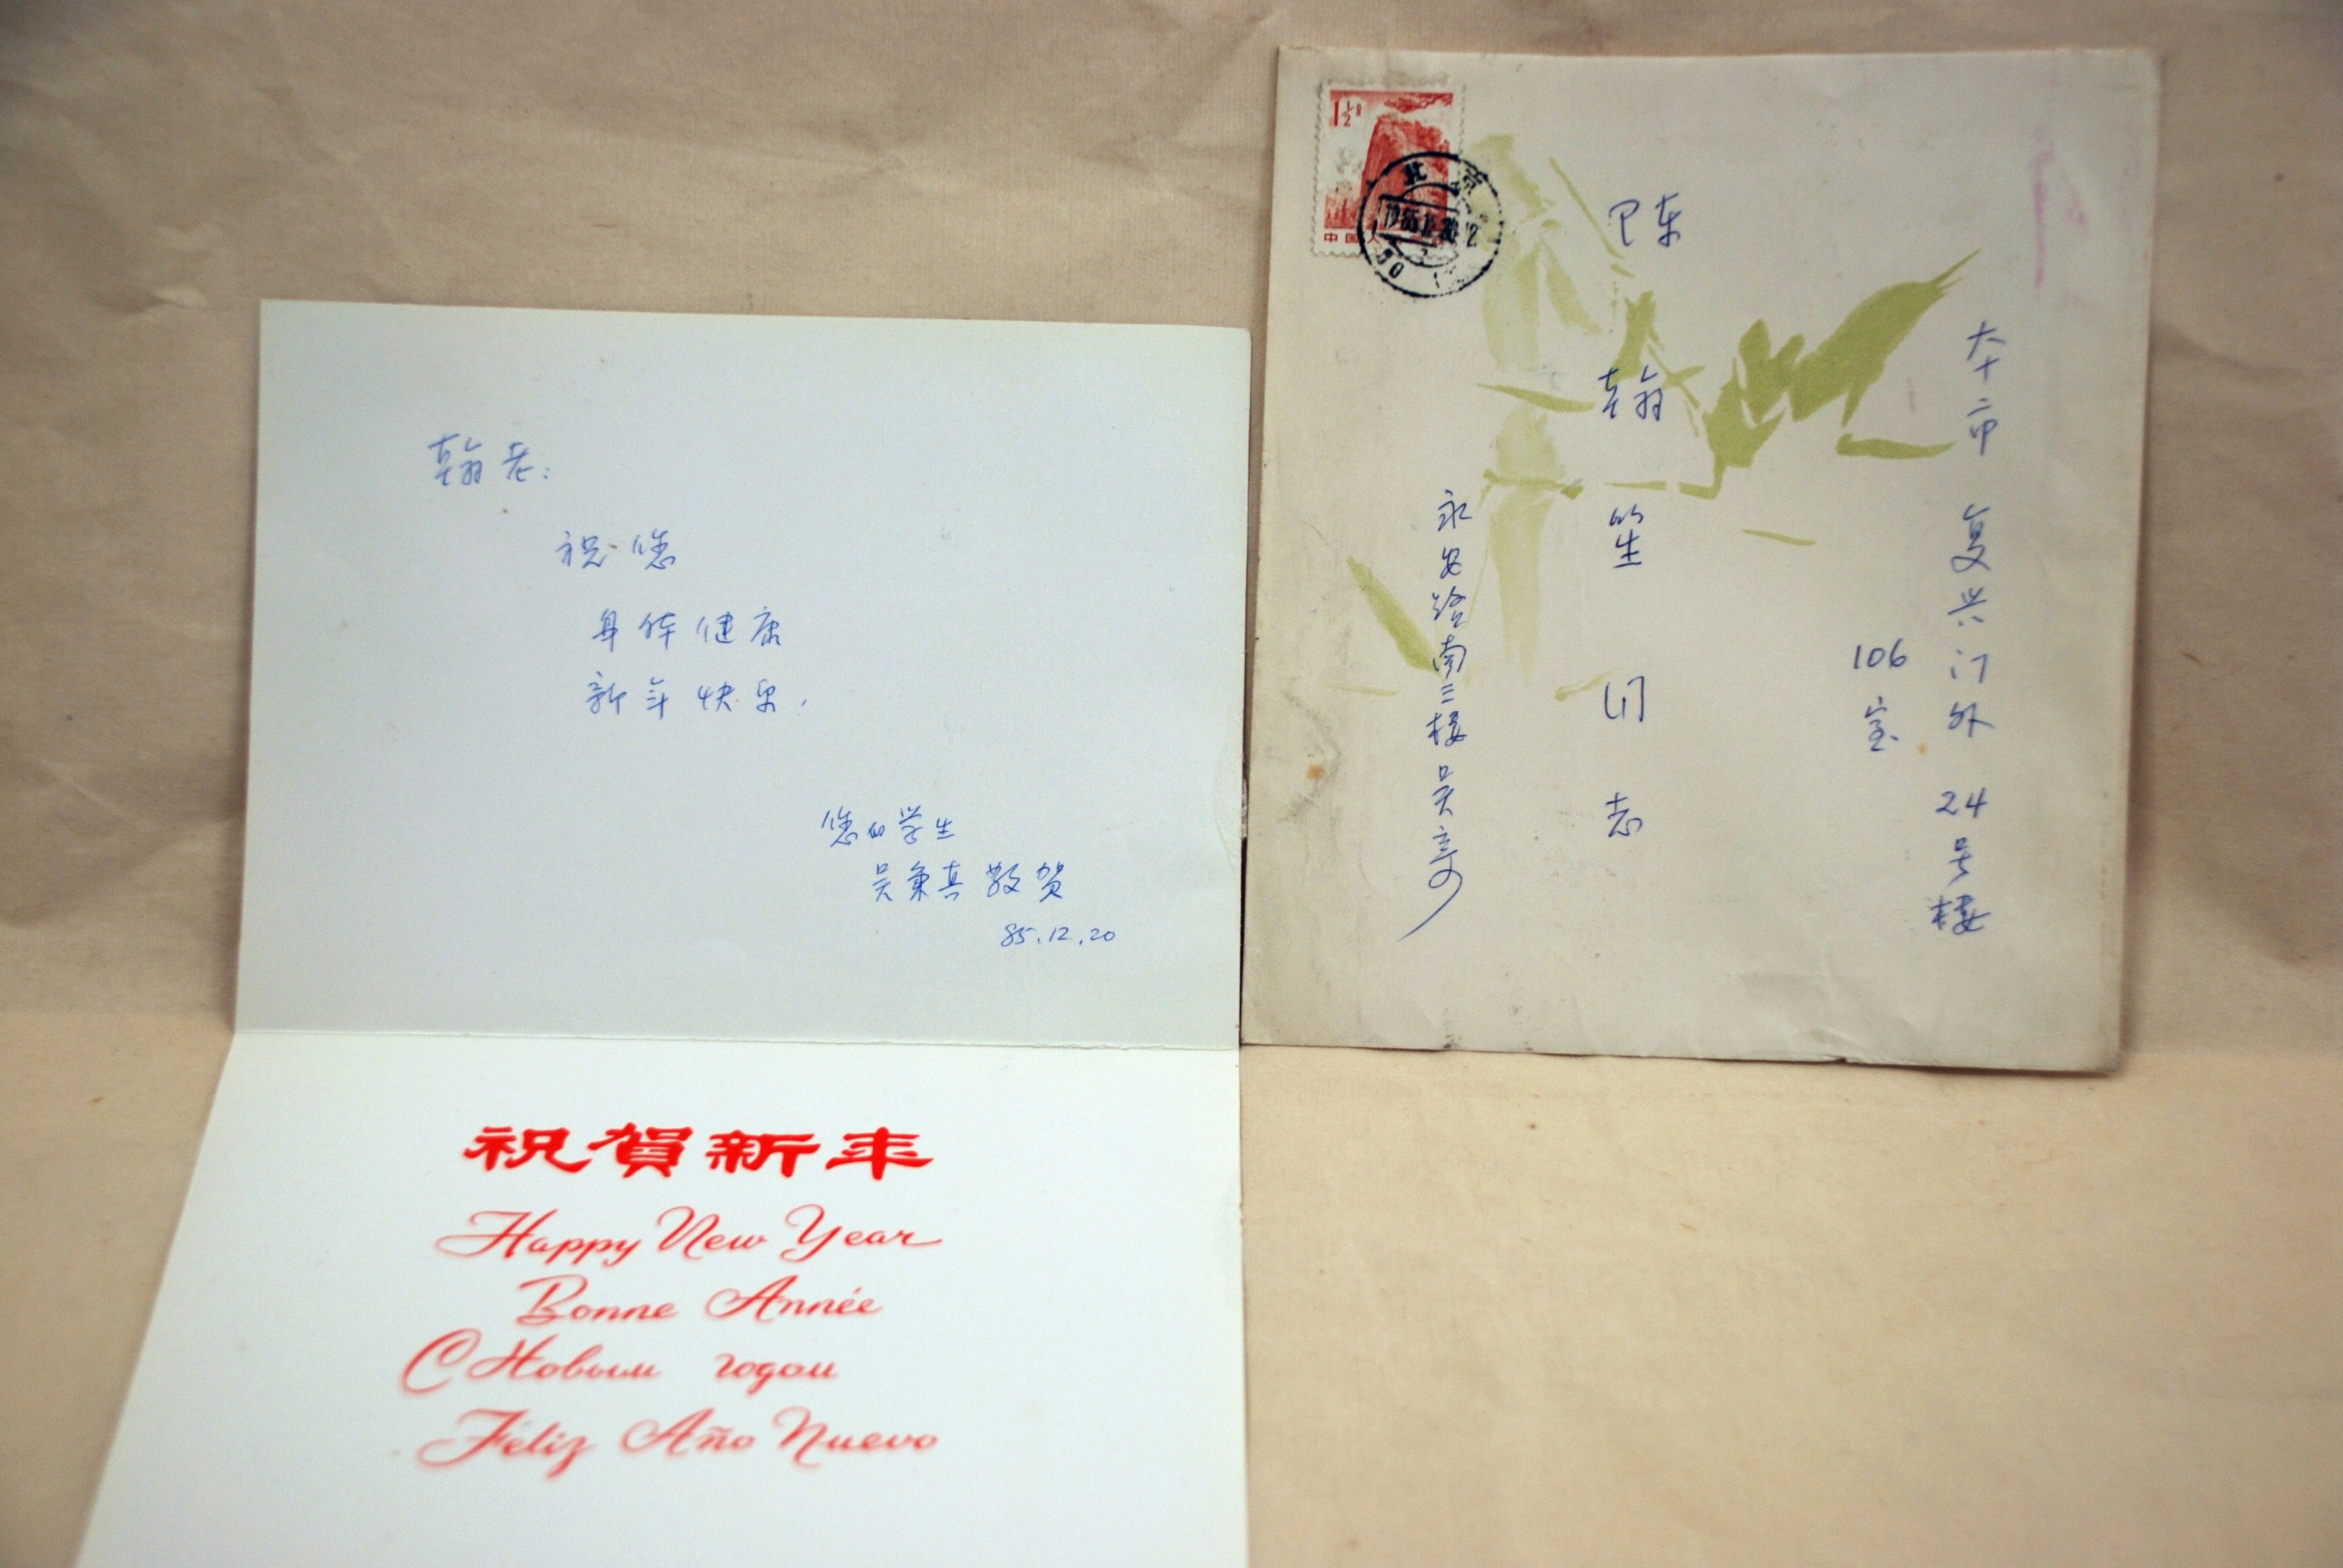 翰老:
祝您
身体健康
新年快乐,
您的学生
吴秉真 敬贺
85.12.20
祝賀新年
Happy New Year
Bonne Année
С Новым годом
Féliz Año Nuevo
1½
北京
中国人
本市 复兴门外 24号楼
106室
陈翰笙同志
永安路南三楼 吴寄